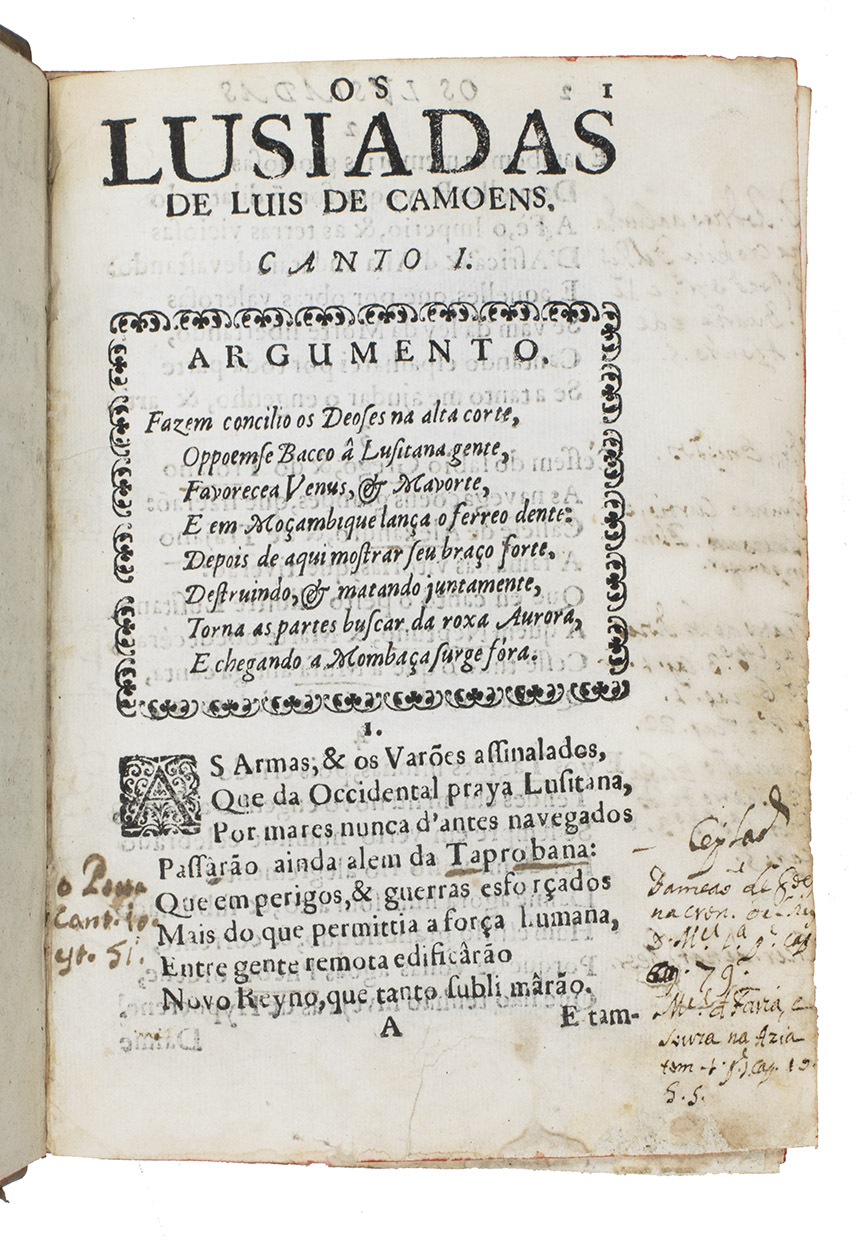 OS 1
LUSIADAS
DE LUIS DE CAMOENS.
CANTO I.
ARGUMENTO.
Fazem concilio os Deoſes na alta corte,
Oppoemſe Bacco â Luſitana gente,
Favorecea Venus, & Mavorte,
E em Moçambique lança o ferreo dente:
Depois de aqui moſtrar ſeu braço forte,
Deſtruindo, & matando juntamente,
Torna as partes buſcar da roxa Aurora,
E chegando a Mombaça ſurge fóra.
1.
AS Armas, & os Varões aſſinalados,
Que da Occidental praya Luſitana,
Por mares nunca d'antes navegados
Paſſàrão ainda alem da Taprobana:
Que em perigos, & guerras esforçados
Mais do que permittia a força Lumana,
Entre gente remota edificârão
Novo Reyno, que tanto ſublimârão.
A E tam-
o Poeta
Cant. 10.
st. 51.
Damião de
na cron.
cap
79.
Faria, e
souza na Azia
tom 1. cap. 
5.5.